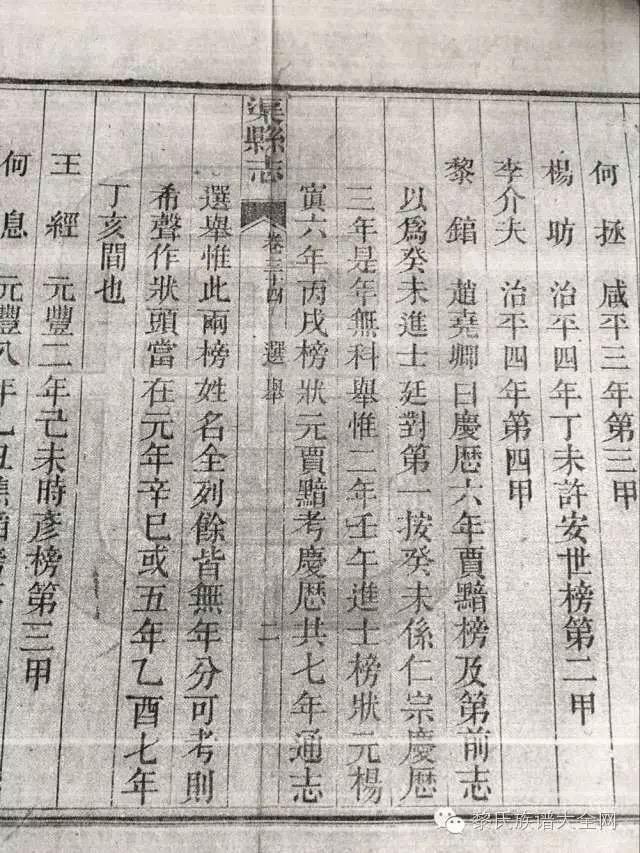 何拯 咸平三年第三甲
楊助 治平四年丁未許安世榜第二甲
李介夫 治平四年第四甲
黎錧 趙堯卿曰慶歷六年賈黯榜及第前志
以為癸未進士廷對第一按癸未係仁宗慶歷
三年是年無科舉惟二年壬午進士榜狀元楊
寘六年丙戌榜狀元賈黯考慶歷共七年通志
渠縣志 卷三十四 選舉 二
選舉惟此兩榜姓名全列餘皆無年分可考則
希聲作狀頭當在元年辛巳或五年乙酉七年
丁亥間也
王經 元豐二年己未時彥榜第三甲
何息 元豐八年乙丑焦蹈榜
黎氏族谱大全网